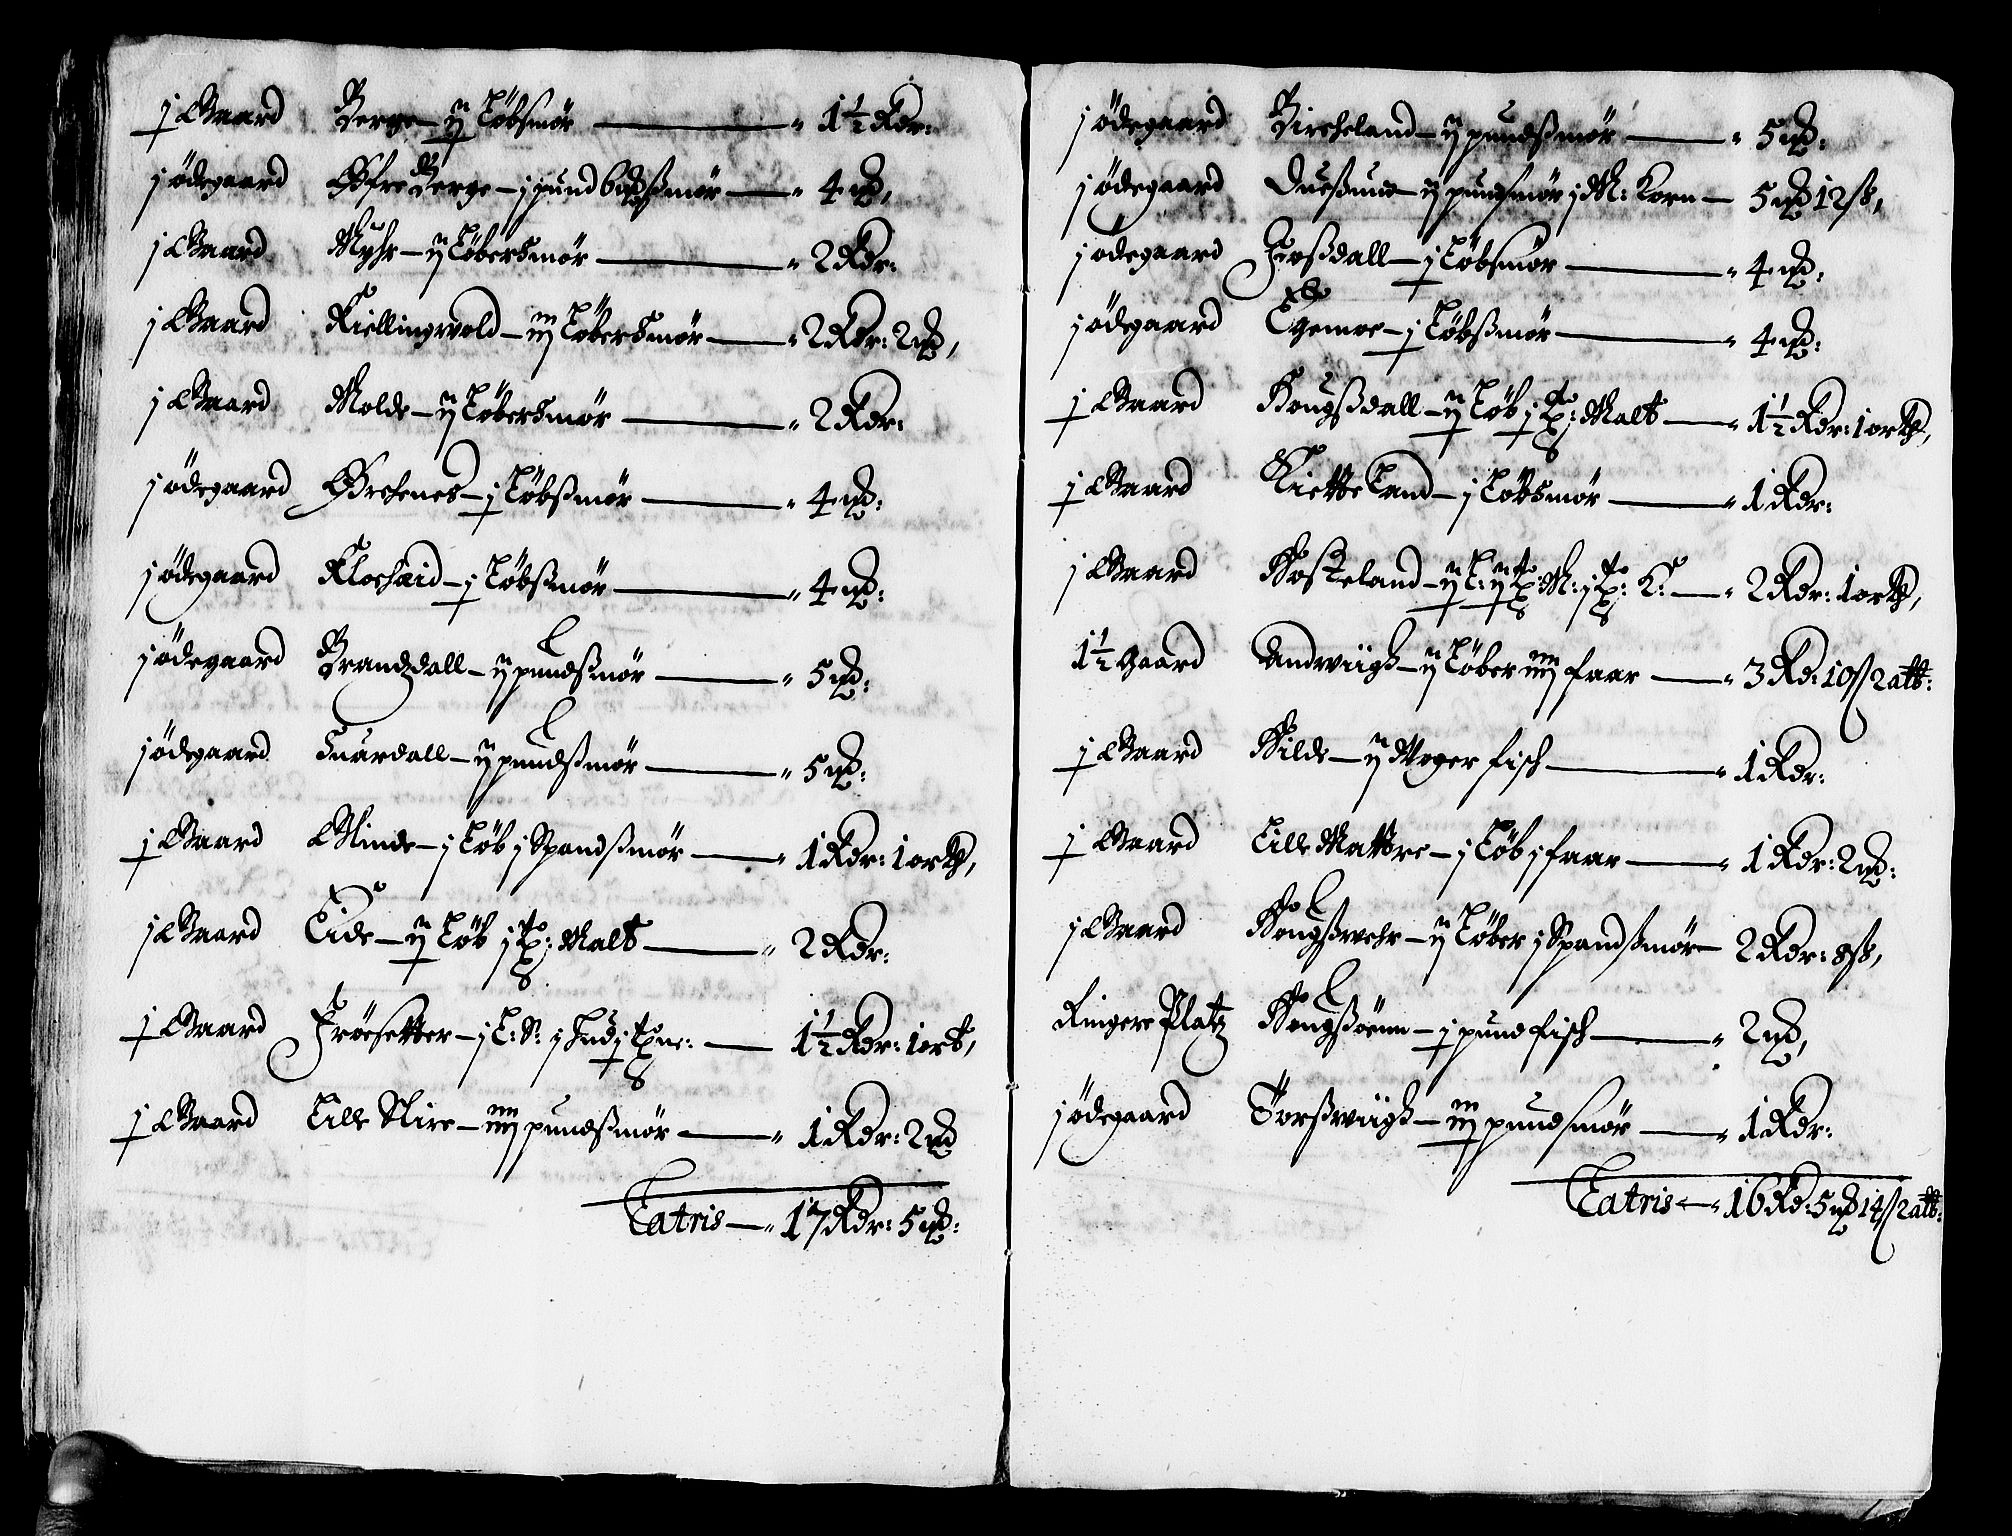 j Gaard Berge – ij Løbsmør — 1½ Rdr:
j ødegaard Øfre Berge – j pund 6 ℔ smør — 4 m℔,
j Gaard Myhr – ij Løber Smør — 2 Rdr:
j Gaard Kiellingwold – iij Løber Smør — 2 Rdr: 2 m℔,
j Gaard Molde – ij Løber Smør — 2 Rdr:
j ødegaard Ørchenes – j Løbßmør — 4 m℔:
j ødegaard Klochæid – j Løbßmør — 4 m℔:
j ødegaard Brandzdall – ij pundßmør — 5 m℔:
j ødegaard Suardall – ij pundßmør — 5 m℔:
j Gaard Minde – j Løb j Spandßmør — 1 Rdr: 1 orth,
j Gaard Eide – ij Løb j T: Malt — 2 Rdr:
j Gaard Frøesetter – j L: S: j Hud j Tne: — 1½ Rdr: 1 ort,
j Gaard Lille Nire – iiij pundßmør — 1 Rdr: 2 m℔
Latris — 17 Rdr: 5 m℔:
j ødegaard Bircheland – ij pundßmør — 5 m℔:
j ødegaard Dueßund – ij pundsmør j M: Korn — 5 m℔ 12 ß,
j ødegaard Fioßdall – j Løbsmør — 4 m℔:
j ødegaard Egemoe – j Løbßmør — 4 m℔:
j Gaard Hougßdall – ij Løb j T: Malt — 1½ Rdr: 1 orth,
j Gaard Kietteland – j Løbsmør — 1 Rdr:
j Gaard Hoskeland – ij L: ij T: M: j T: K: — 2 Rdr: 1 orth,
1½ Gaard Andwiigh – ij Løber iiij faar — 3 Rd: 10 ß 2 alb:
j Gaard Hilde – ij Woger fisch — 1 Rdr:
j Gaard Lille Mattre – j Løb j faar — 1 Rdr: 2 m℔:
j Gaard Hougßwehr – ij Løber j Spandßmør – 2 Rdr: 8 ß,
Ringere Platz Hougßøenn – j pund fisch — 2 m℔,
j ødegaard Torßwiigh – iij pundsmør — 1 Rdr:
Latris — 16 Rd: 5 m℔ 14 ß 2 alb: